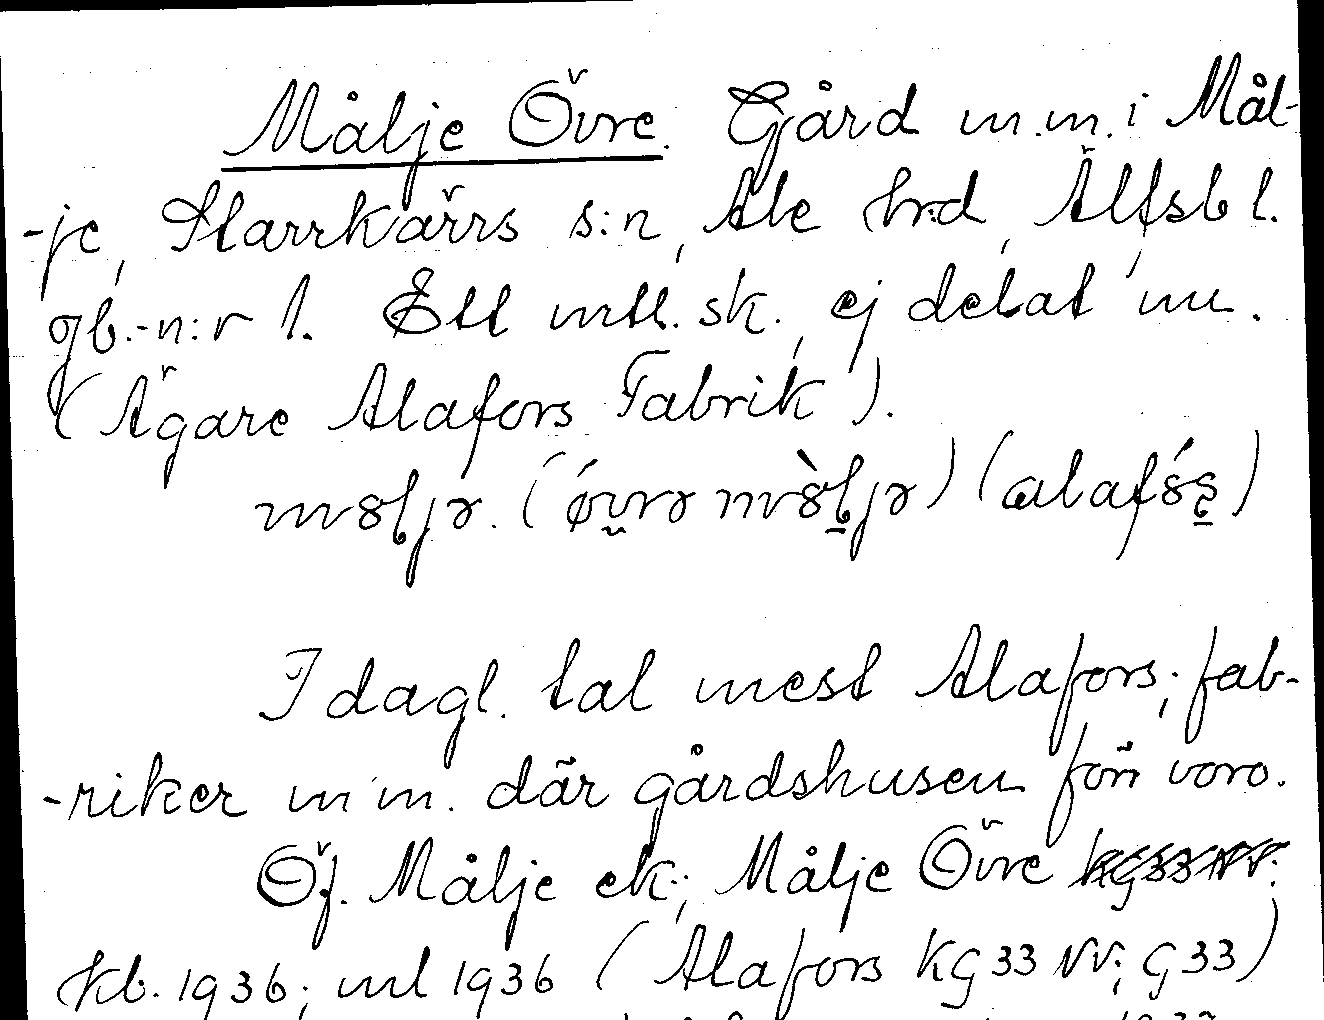 Målje Övre. Gård m.m. i Mål-
-je, Starrkärrs s:n, Ale hrd, Älfsb l.
gb.-n:r 1. Ett mtl. sk., ej delat nu.
(Ägare Alafors Fabrik).
I dagl. tal mest Alafors; fab-
-riker m.m. där gårdshusen förr voro.
Öf. Målje ek; Målje Övre
kb. 1936; ml 1936 (Alafors KG 33 NV; G 33)